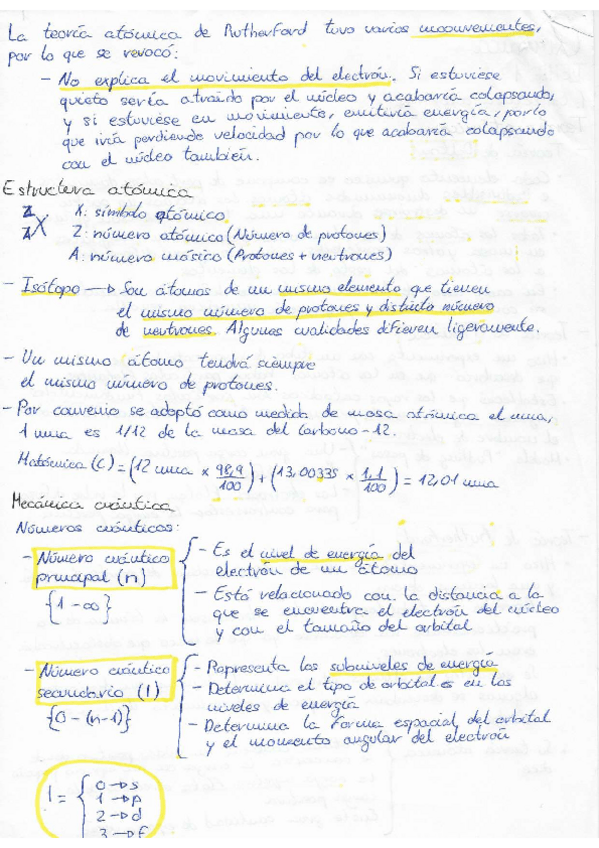 La teoría atómica de Rutherford tuvo varios inconvenientes,
por lo que se revocó:
- No explica el movimiento del electrón. Si estuviese
quieto sería atraído por el núcleo y acabaría colapsando,
y si estuviese en movimiento, emitiría energía, por lo
que iría perdiendo velocidad por lo que acabaría colapsando
con el núcleo también.
Estructura atómica
X: símbolo atómico
Z: número atómico (Número de protones)
A: número másico (Protones + neutrones)
- Isótopo → Son átomos de un mismo elemento que tienen
el mismo número de protones y distinto número
de neutrones. Algunas cualidades difieren ligeramente.
- Un mismo átomo tendrá siempre
el mismo número de protones.
- Por convenio se adoptó como medida de masa atómica el uma,
1 uma es 1/12 de la masa del Carbono-12.
Matómica (C) = (12 uma x 98,9/100) + (13,00335 x 1,1/100) = 12,01 uma
Mecánica cuántica
Números cuánticos:
- Número cuántico principal (n)
{1 - ∞}
- Es el nivel de energía del
electrón de un átomo
- Está relacionado con la distancia a la
que se encuentra el electrón del núcleo
y con el tamaño del orbital
- Número cuántico secundario (l)
{0 - (n-1)}
- Representa los subniveles de energía
- Determina el tipo de orbital es en los
niveles de energía
- Determina la forma espacial del orbital
y el momento angular del electrón
l = { 0 → s
1 → p
2 → d
3 → f